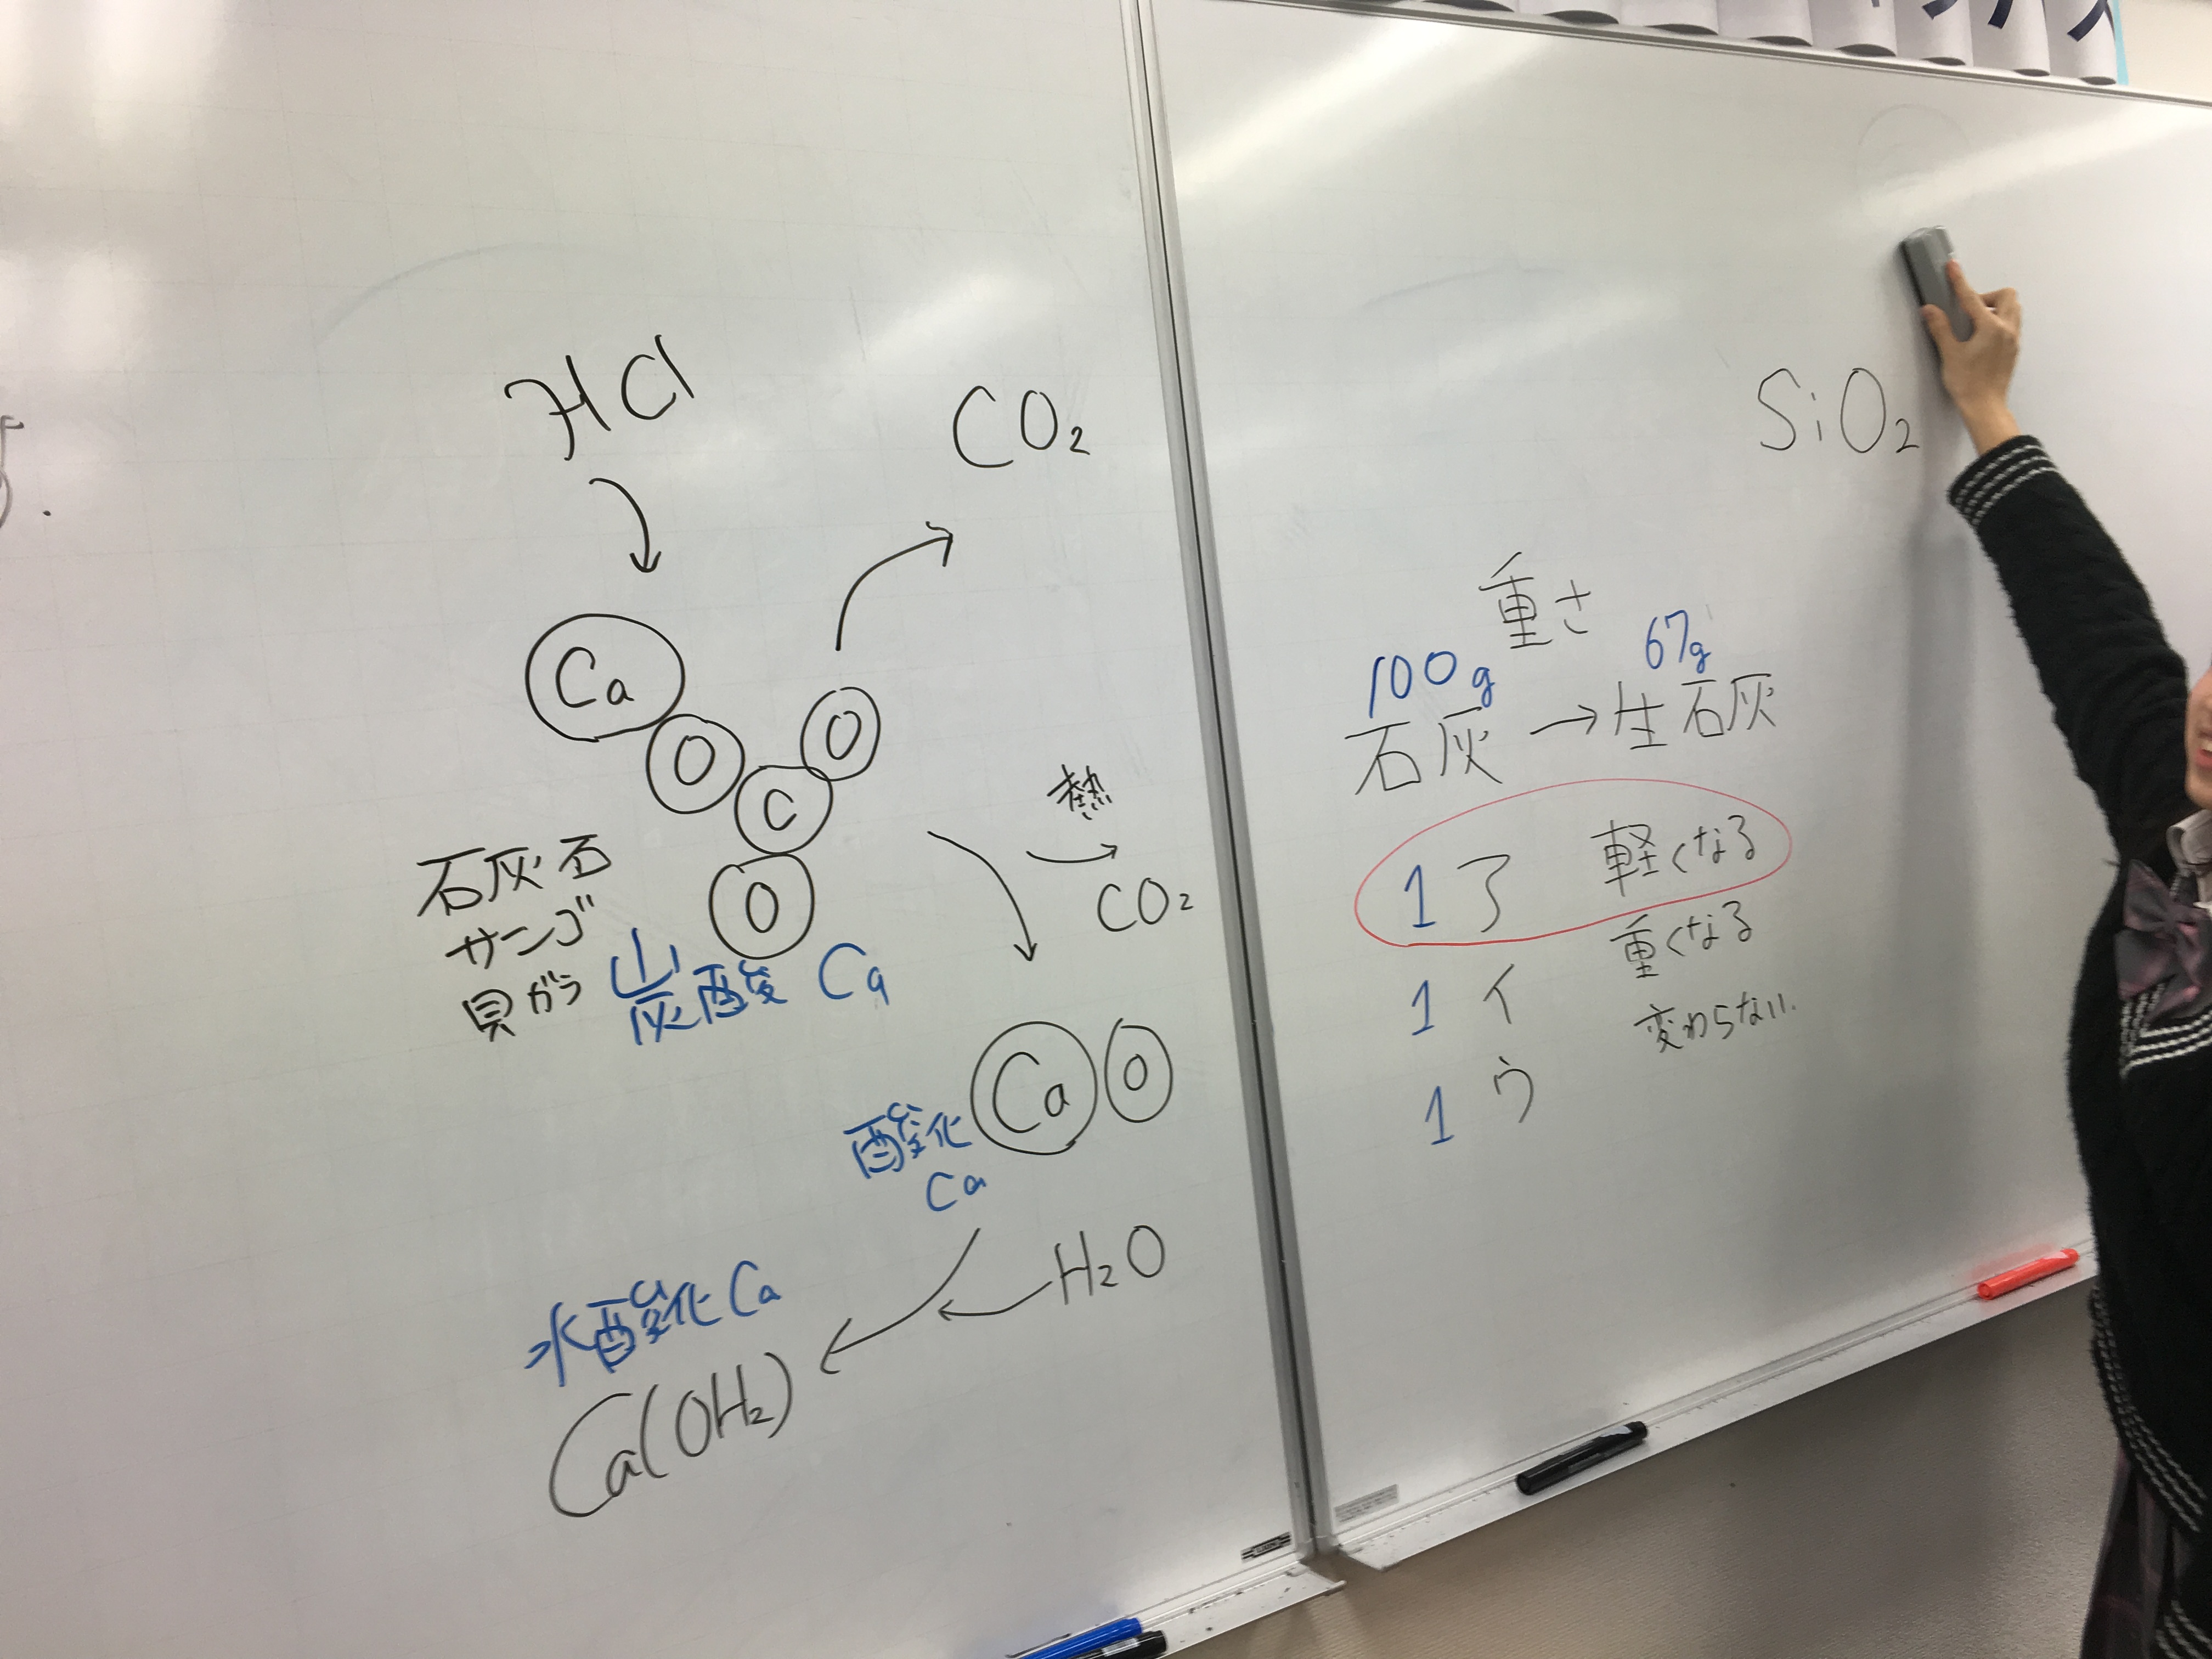 HCl
CO₂
Ca
O
C
O
O
石灰石
サンゴ
貝がら
炭酸 Ca
熱
CO₂
Ca O
酸化
Ca
H₂O
水酸化 Ca
Ca(OH₂)
SiO₂
重さ
100g
67g
石灰→生石灰
1 ア 軽くなる
1 イ 重くなる
1 ウ 変わらない.